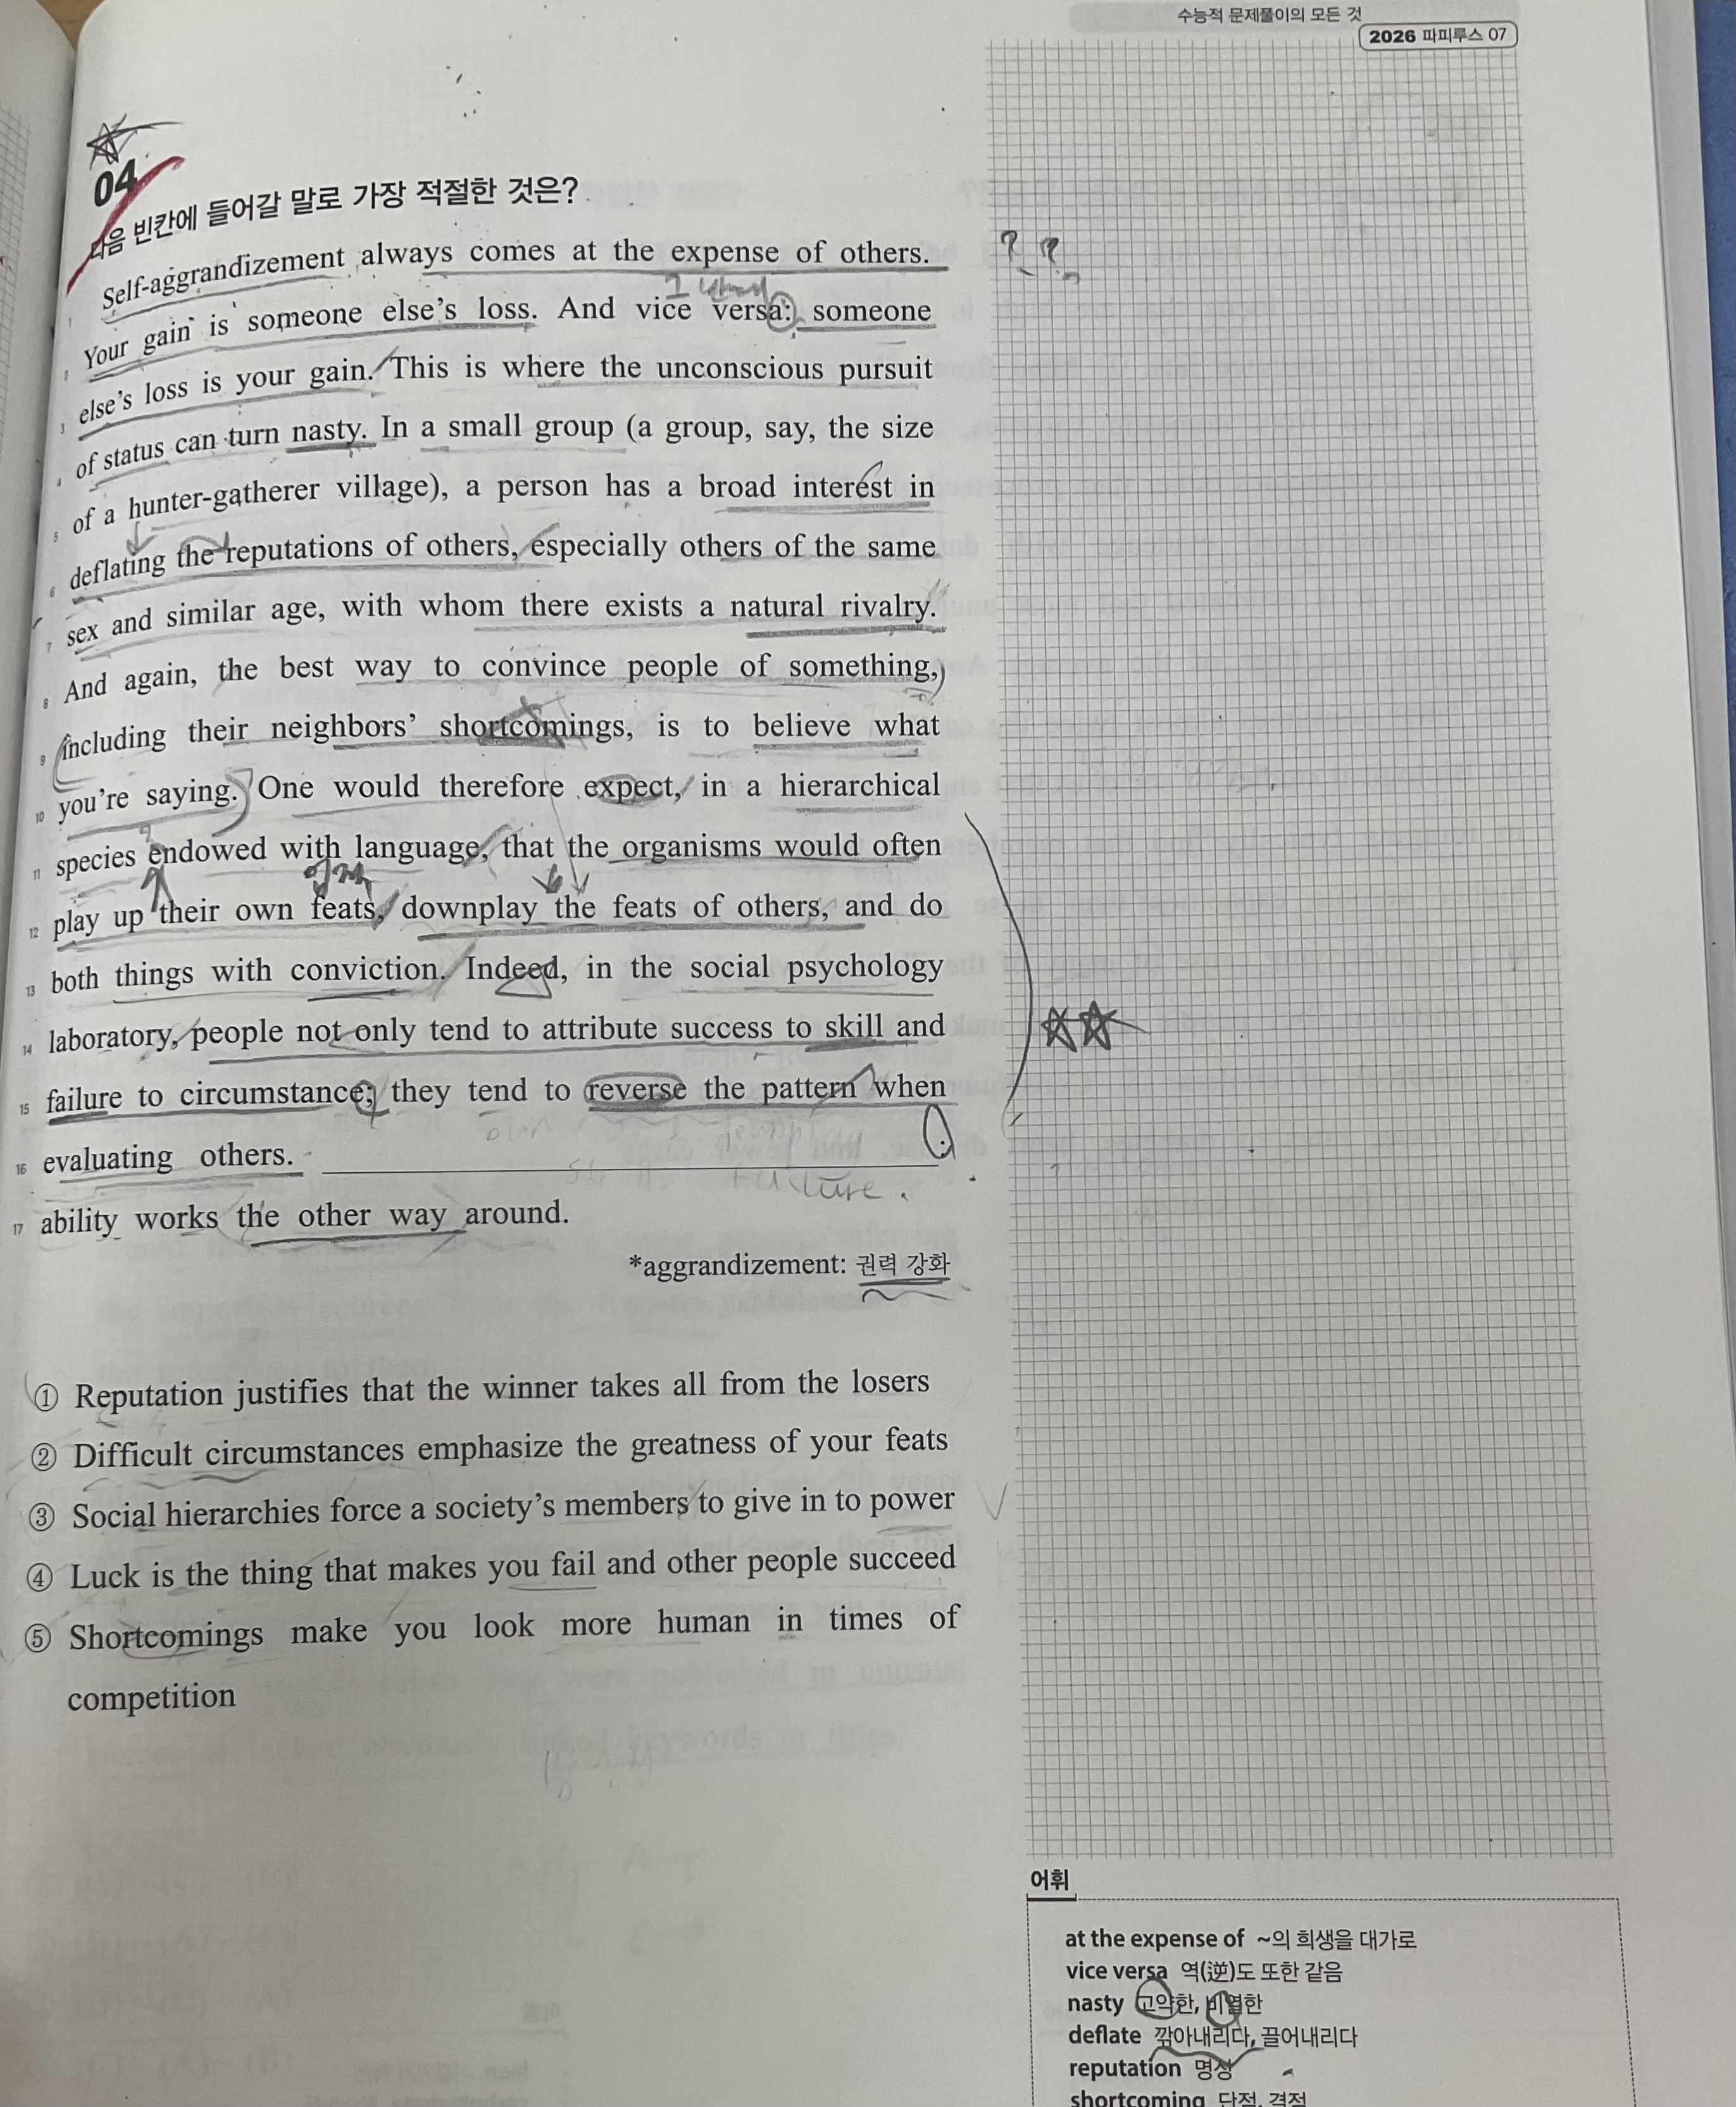 수능적 문제풀이의 모든 것
2026 파피루스 07
04
다음 빈칸에 들어갈 말로 가장 적절한 것은?
1 Self-aggrandizement always comes at the expense of others.
? ?
2 Your gain is someone else's loss. And vice versa: someone
3 else's loss is your gain. This is where the unconscious pursuit
4 of status can turn nasty. In a small group (a group, say, the size
5 of a hunter-gatherer village), a person has a broad interest in
6 deflating the reputations of others, especially others of the same
7 sex and similar age, with whom there exists a natural rivalry.
8 And again, the best way to convince people of something,
9 including their neighbors' shortcomings, is to believe what
10 you're saying. One would therefore expect, in a hierarchical
11 species endowed with language, that the organisms would often
12 play up their own feats, downplay the feats of others, and do
13 both things with conviction. Indeed, in the social psychology
14 laboratory, people not only tend to attribute success to skill and
15 failure to circumstance; they tend to reverse the pattern when
16 evaluating others. ____________________.
failure.
17 ability works the other way around.
*aggrandizement: 권력 강화
① Reputation justifies that the winner takes all from the losers
② Difficult circumstances emphasize the greatness of your feats
③ Social hierarchies force a society's members to give in to power
④ Luck is the thing that makes you fail and other people succeed
⑤ Shortcomings make you look more human in times of
competition
어휘
at the expense of ~의 희생을 대가로
vice versa 역(逆)도 또한 같음
nasty 고약한, 비열한
deflate 깎아내리다, 끌어내리다
reputation 명성
shortcoming 단점, 결점